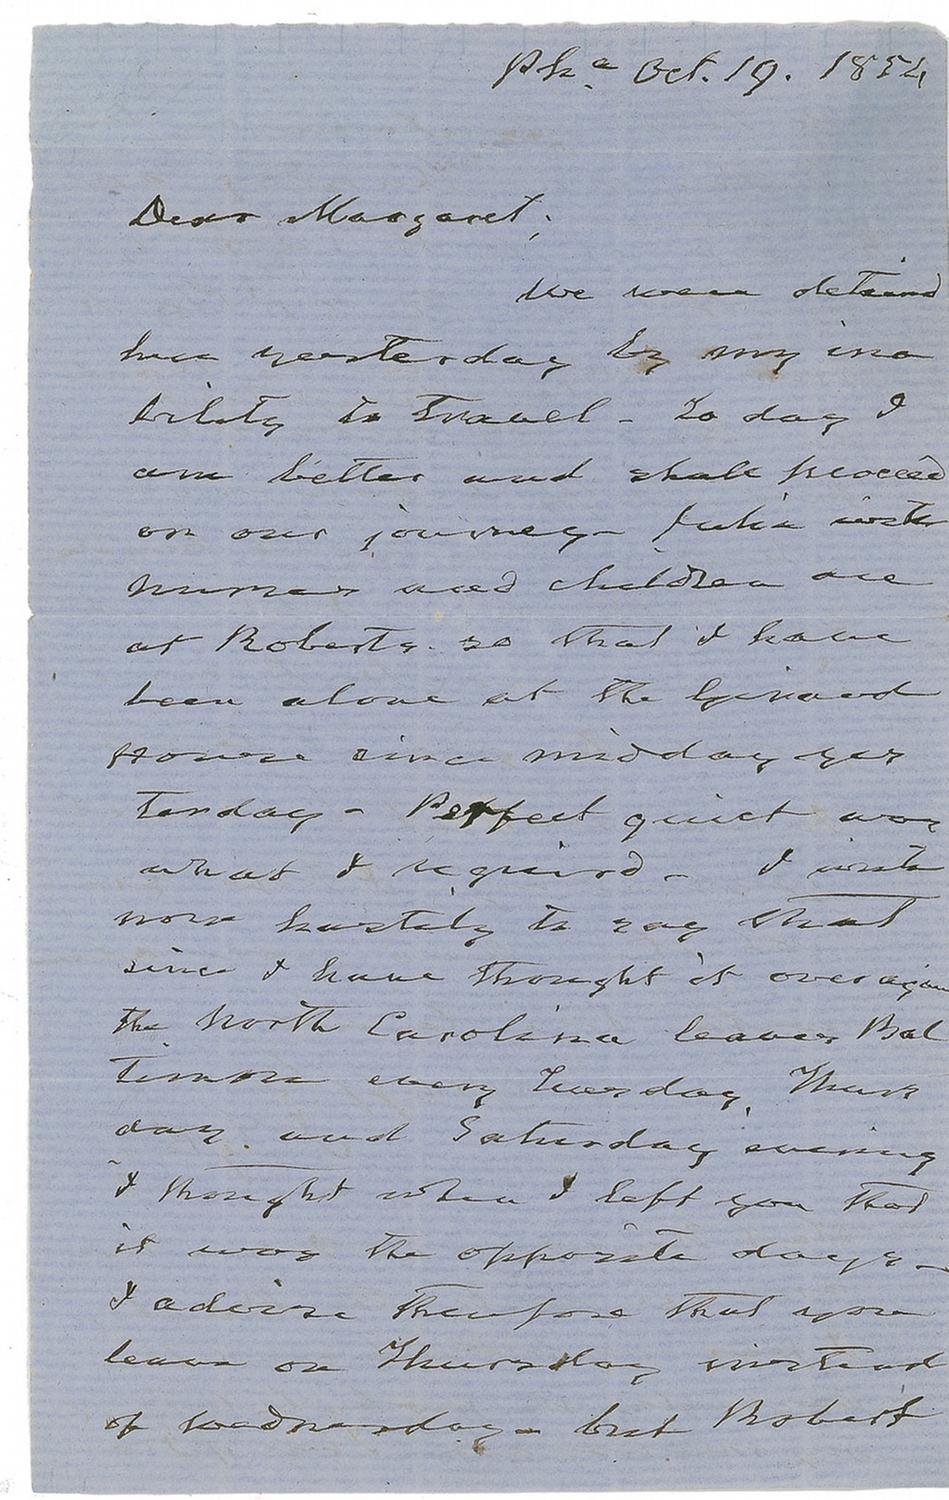 Pha. Oct. 19. 1854
Dear Margaret;
We were detaind
here yesterday by my ina
bility to travel - To day I
am better and shall proceed
on our journey - Julia with
nurses and children are
at Roberts. so that I have
been alone at the Girard
House since midday yes
terday - Perfect quiet was
what I required - I write
now hastily to say that
since I have thought it over again
the North Carolina leaves Bal
timore every Tuesday, Thurs
day, and Saturday evening
I thought when I left you that
it was the opposite days -
I advise therefore that you
leave on Thursday instead
of Wednesday - but Robert